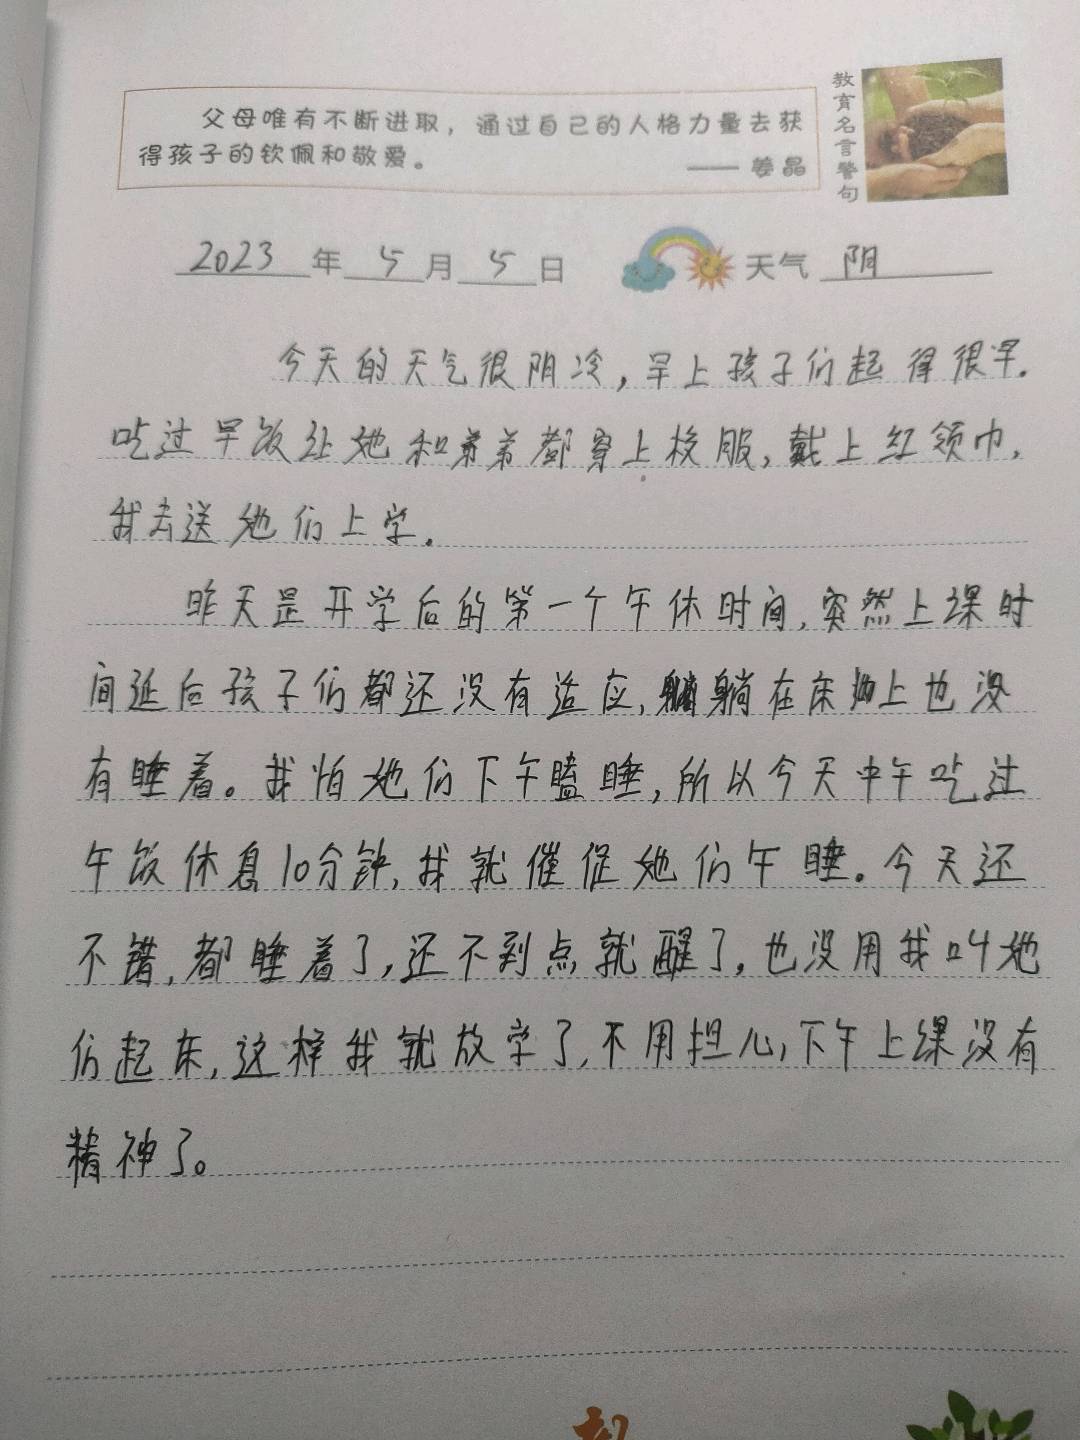 父母唯有不断进取，通过自己的人格力量去获
得孩子的钦佩和敬爱。
—— 姜晶
教育名言警句
2023年5月5日 天气 阴
今天的天气很阴冷，早上孩子们起得很早.
吃过早饭让她和弟弟都穿上校服，戴上红领巾，
我去送她们上学.
昨天是开学后的第一个午休时间，突然上课时
间延后孩子们都还没有适应，躺在床上也没
有睡着。我怕她们下午瞌睡，所以今天中午吃过
午饭休息10分钟，我就催促她们午睡。今天还
不错，都睡着了，还不到点就醒了，也没用我叫她
们起床，这样我就放学了，不用担心，下午上课没有
精神了。